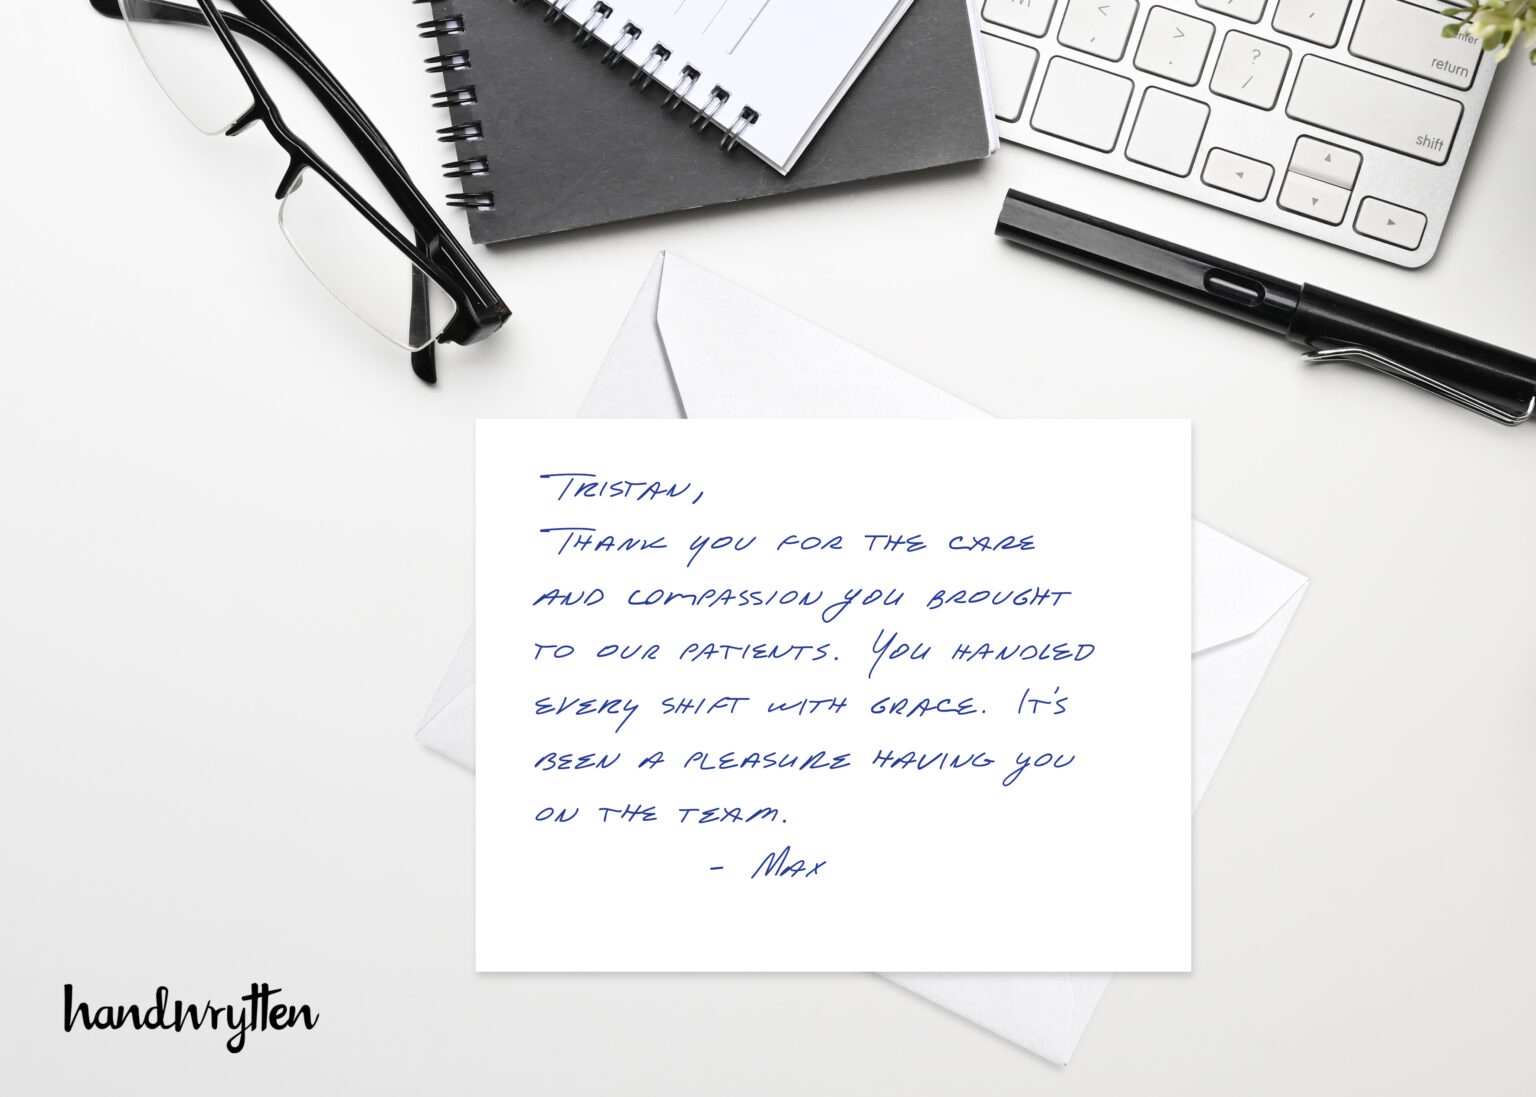 M
<
,
>
.
?
/
enter
return
shift
Tristan,
Thank you for the care
and compassion you brought
to our patients. You handled
every shift with grace. It's
been a pleasure having you
on the team.
- Max
handwrytten